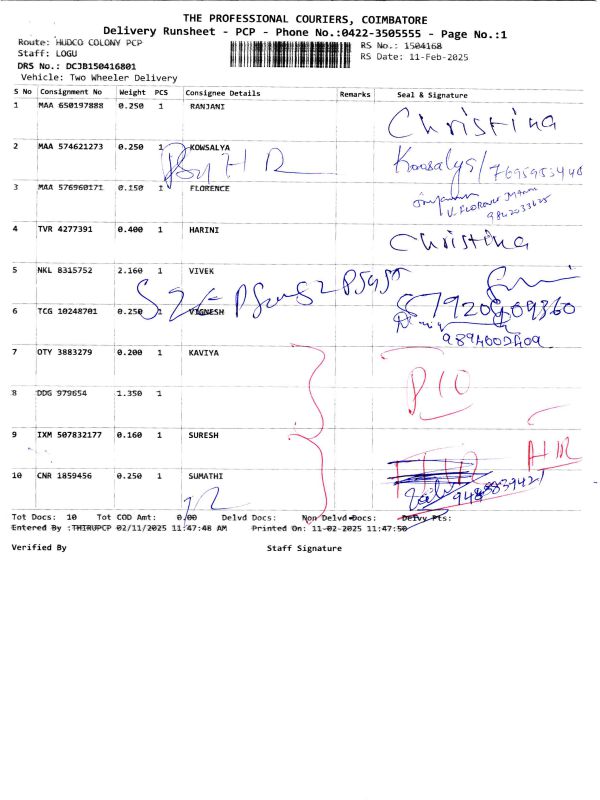 THE PROFESSIONAL COURIERS, COIMBATORE
Delivery Runsheet - PCP - Phone No.:0422-3505555 - Page No.:1
Route: HUDCO COLONY PCP
RS No.: 1504168
Staff: LOGU
RS Date: 11-Feb-2025
DRS No.: DCJB150416801
Vehicle: Two Wheeler Delivery
S No Consignment No Weight PCS Consignee Details Remarks Seal & Signature
1 MAA 650197888 0.250 1 RANJANI
Christina
2 MAA 574621273 0.250 1 KOWSALYA
3 MAA 576960171 0.150 1 FLORENCE
4 TVR 4277391 0.400 1 HARINI
Christina
5 NKL B315752 2.160 1 VIVEK
6 TCG 10248701 0.250 1 VIGNESH
9894002409
7 OTY 3883279 0.200 1 KAVIYA
8 DDG 979654 1.350 1
9 IXM 507832177 0.160 1 SURESH
10 CNR 1859456 0.250 1 SUMATHI
Tot Docs: 10 Tot COD Amt: 0.00 Delvd Docs: Non Delvd Docs: Delvy Pts:
Entered By :THIRUPCP 02/11/2025 11:47:48 AM Printed On: 11-02-2025 11:47:50
Verified By Staff Signature